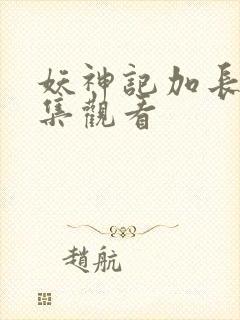 妖神記加長
集觀看
趙航